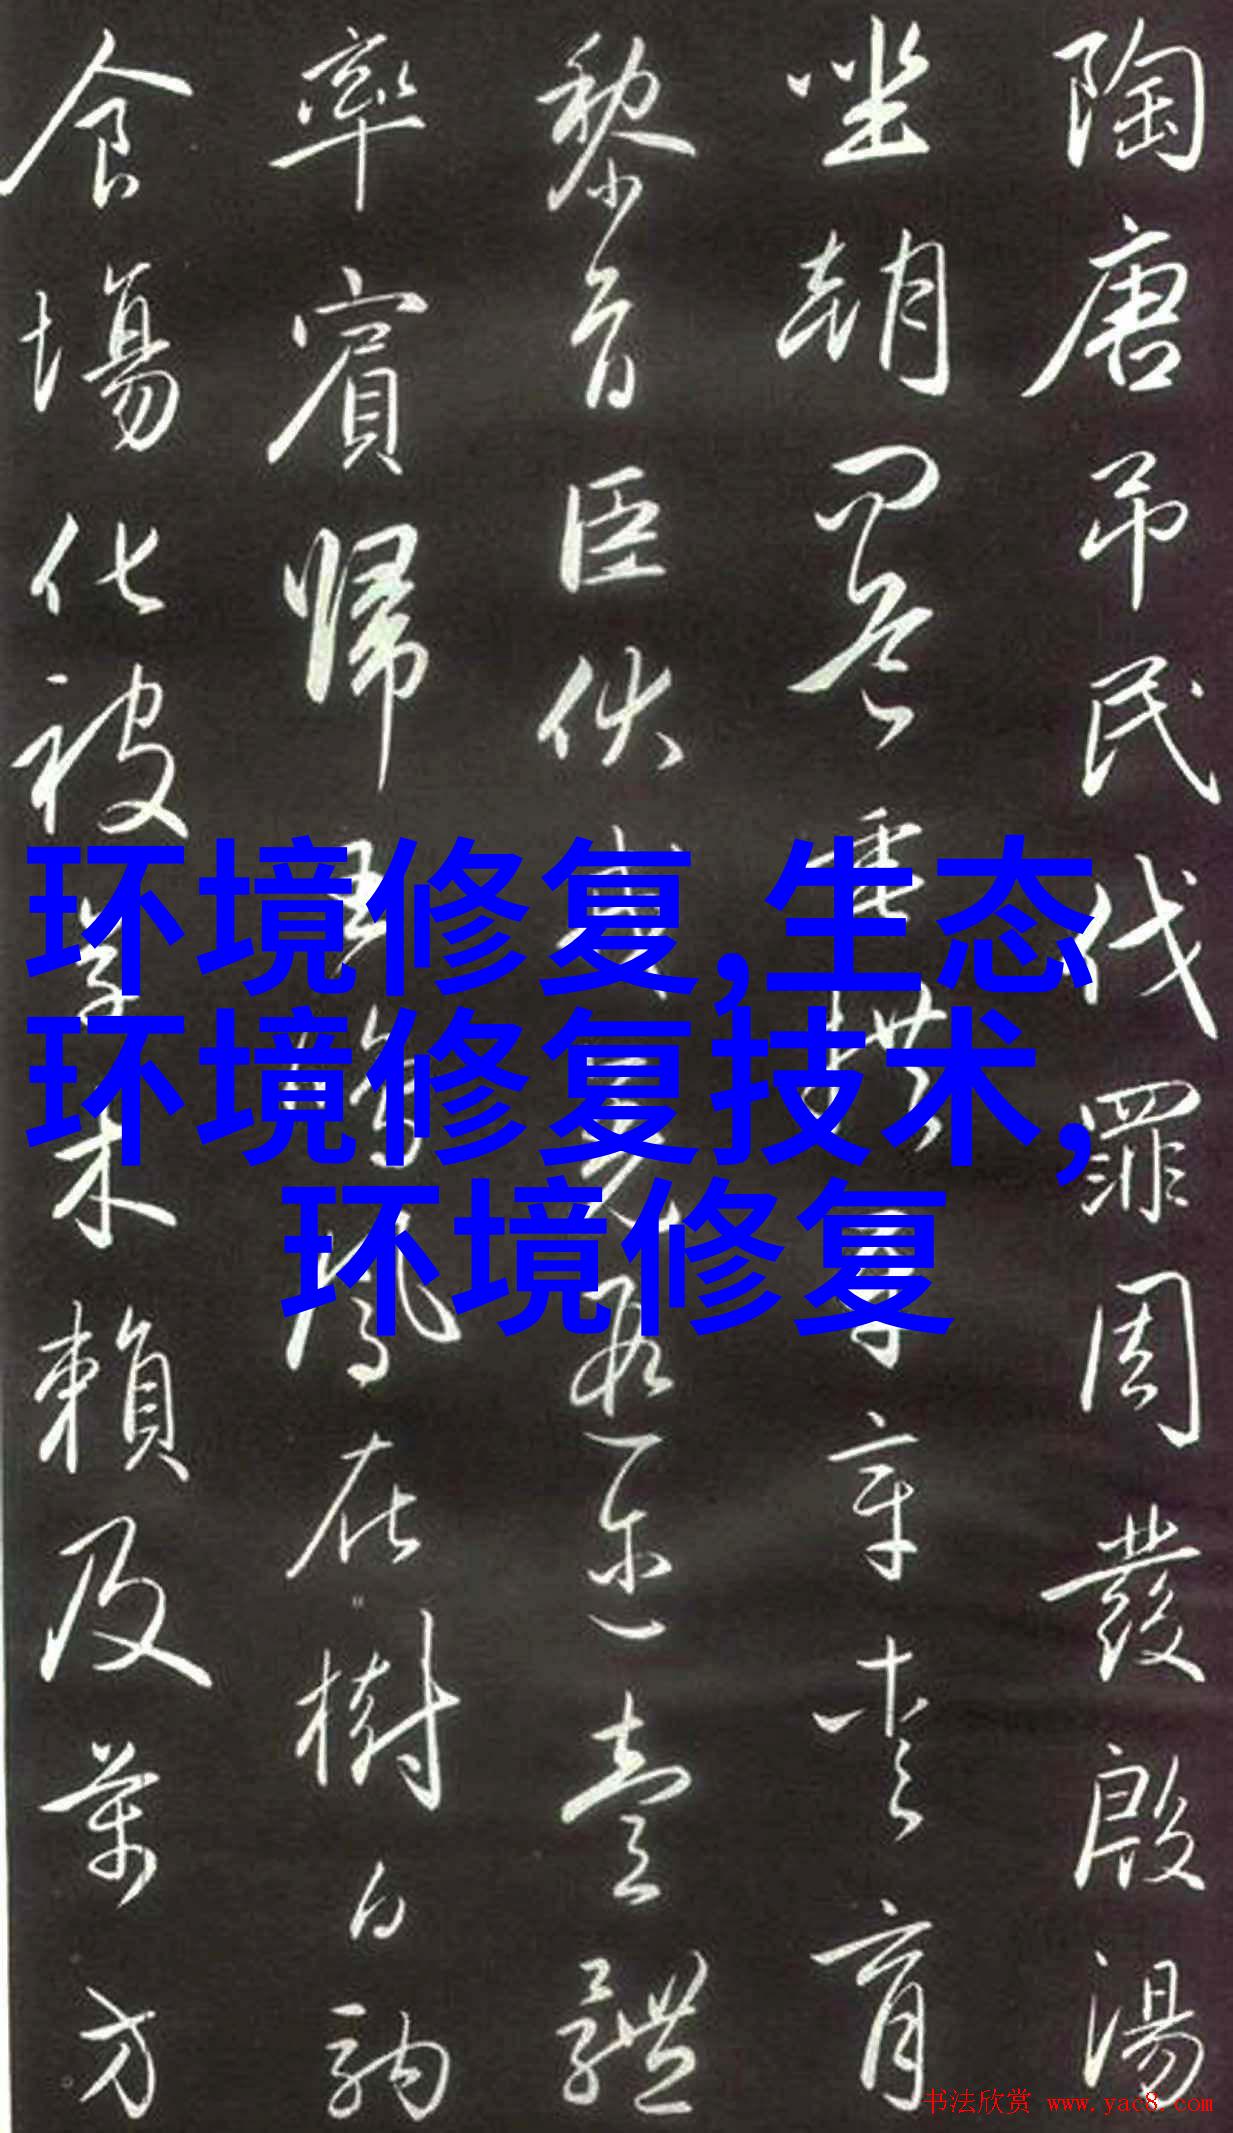 陶唐吊民伐罪周發殷湯
坐朝問道垂拱平章愛育
黎首臣伏戎羌遐迩壹體
率賓歸王鳴鳳在樹白駒
食場化被草木賴及萬方
环境修复,生态
环境修复技术,
环境修复
书法欣赏 www.yac8.com